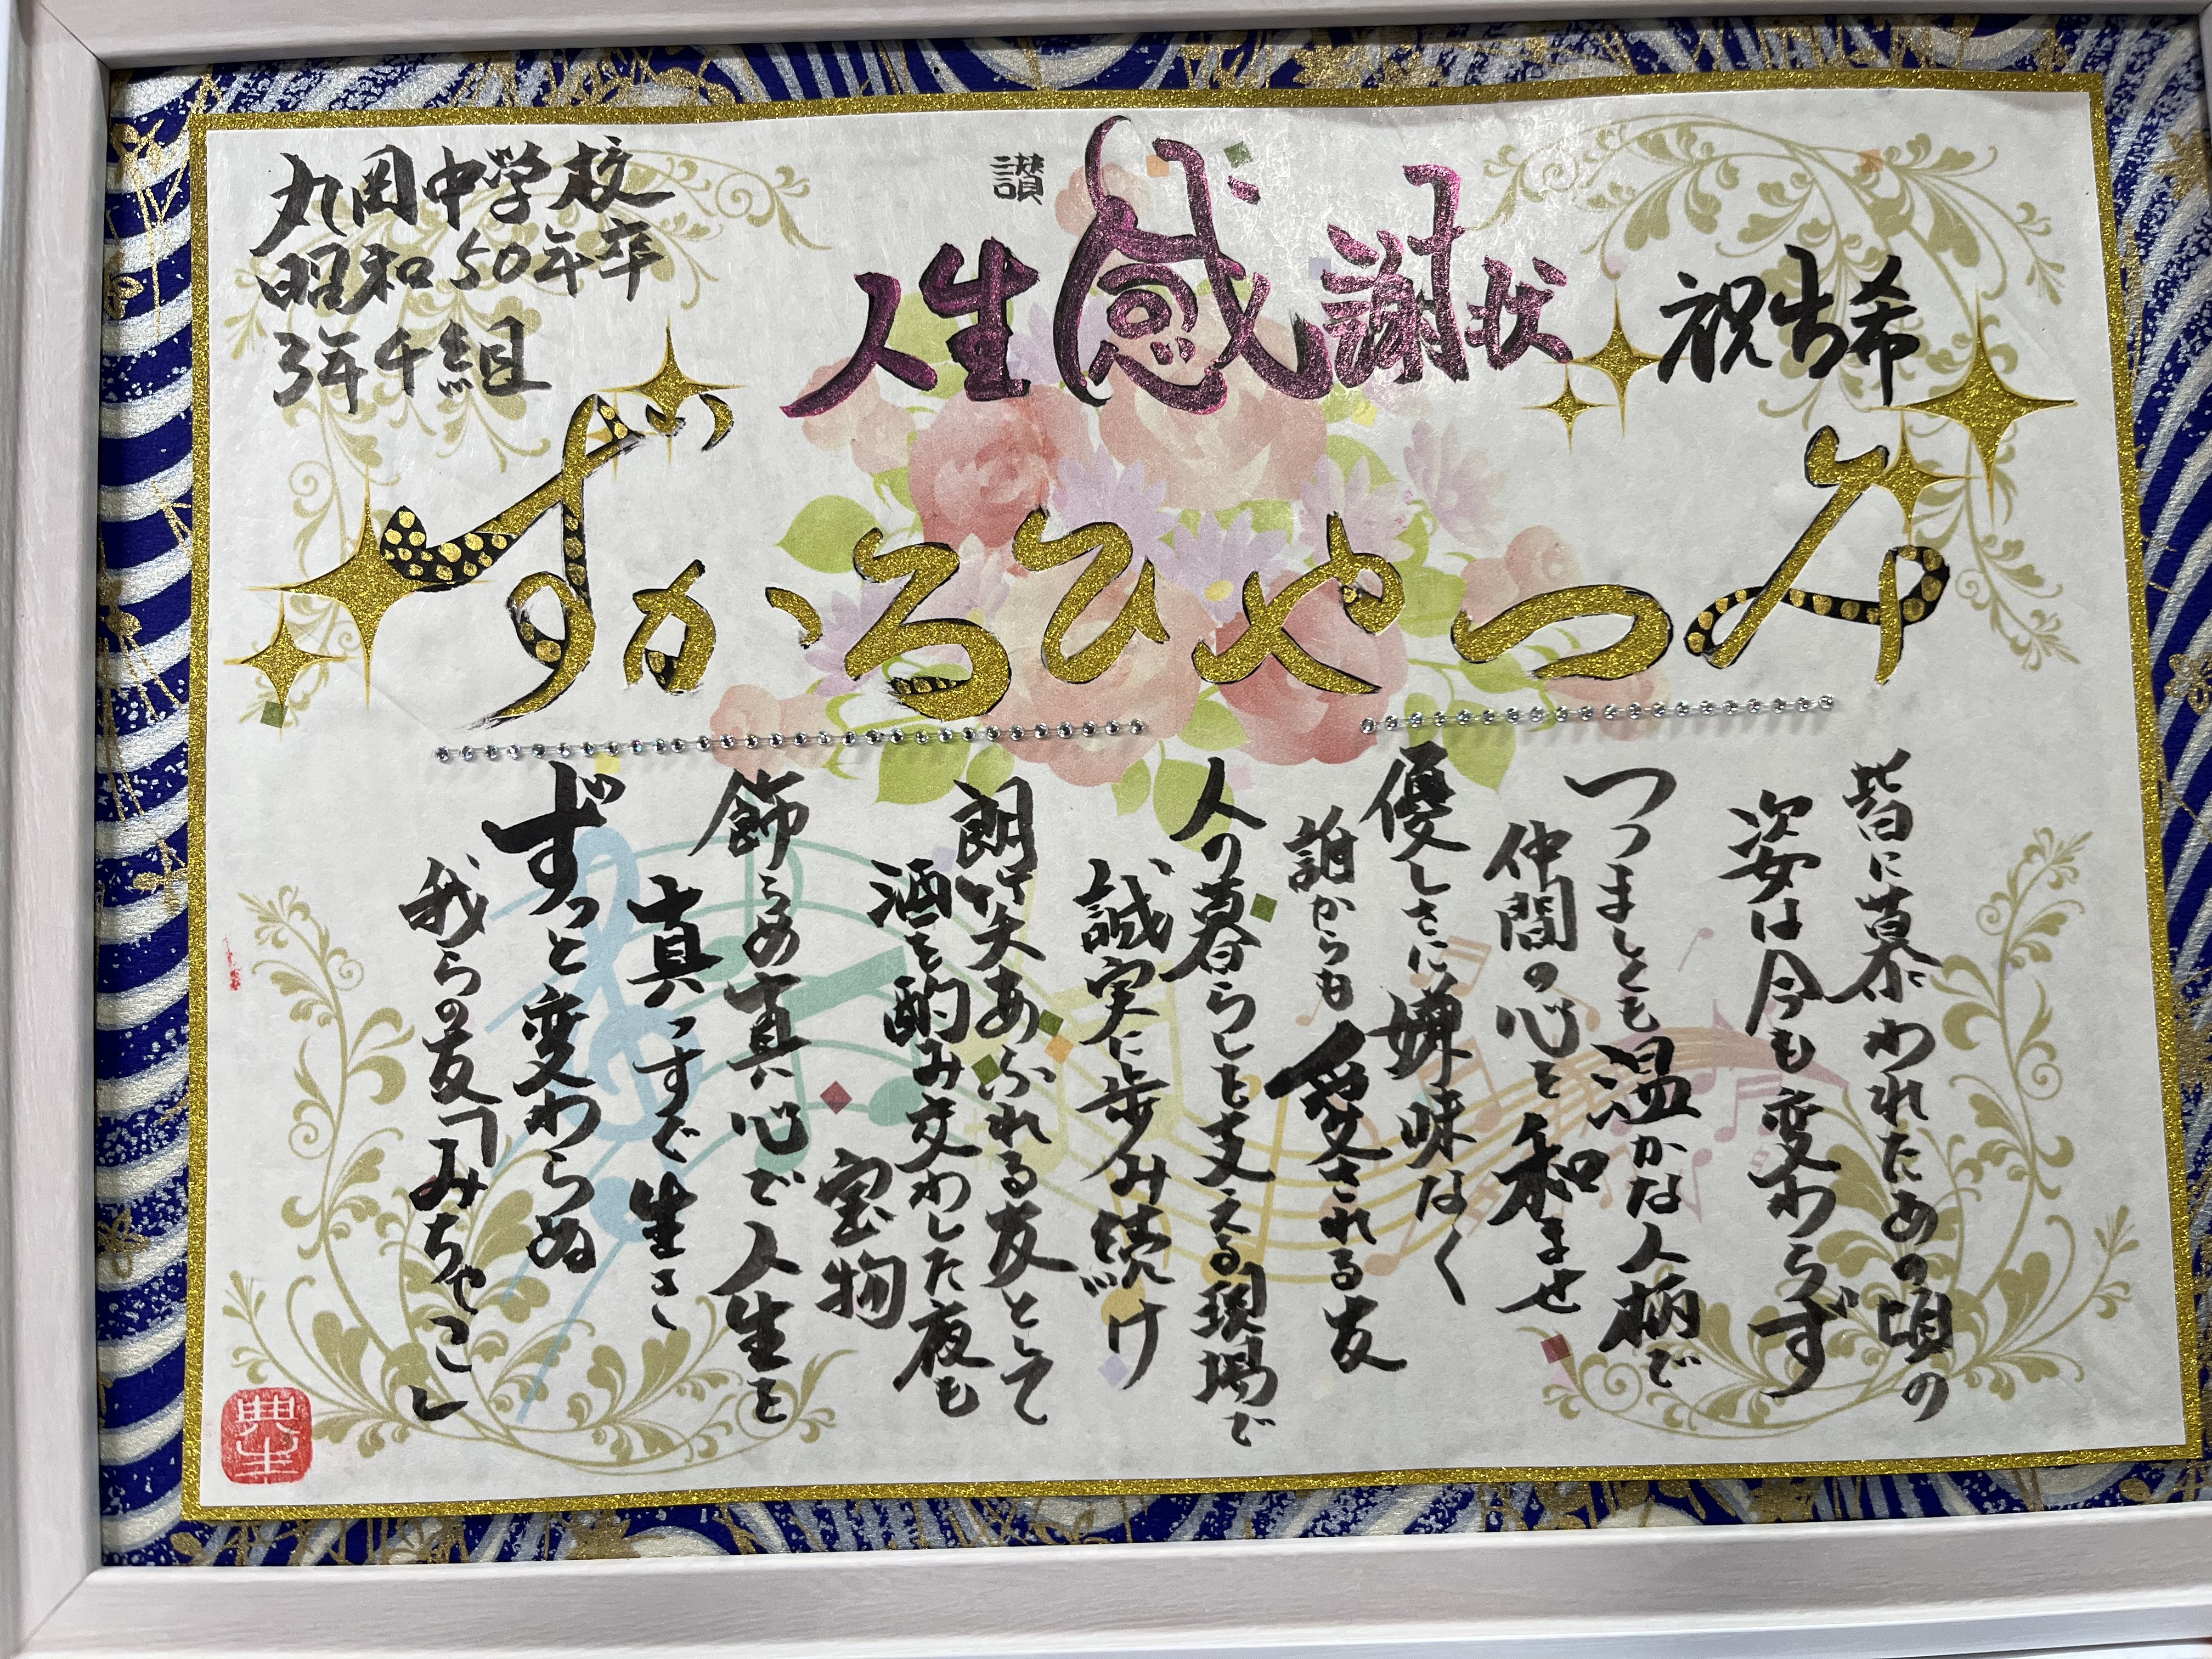 祝古希
讃
人生感謝状
丸岡中学校
昭和50年卒
3年チ組
みつやひろかず
皆に慕われたあの頃の
姿は今も変わらず
つつましくも温かな人柄で
仲間の心を和ませ
優しさに嫌味なく
誰からも愛される友
人の暮らしを支える現場で
誠実に歩み続け
朗 笑あふれる友として
酒を酌み交わした夜も
宝物
飾らぬ真心で人生を
真っすぐ生き
ずっと変わらぬ
我らの友「みちゃこ」
典生